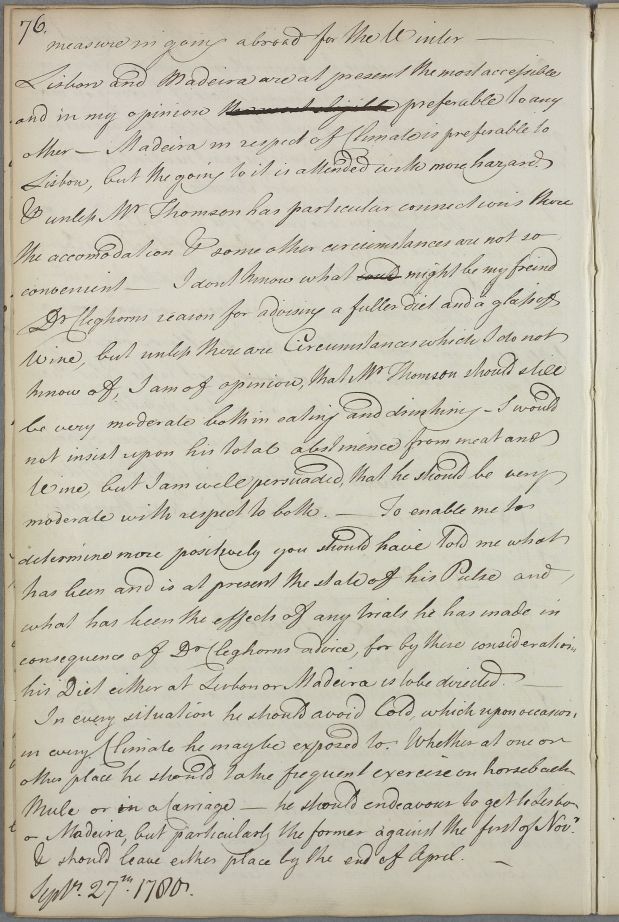 76.
measure in going abroad for the Winter —
Lisbon and Madeira are at present the most accessible
and in my opinion the most eligible preferable to any
other — Madeira in respect of Climate is preferable to
Lisbon, but the going to it is attended with more hazard
& unless Mr Thomson has particular connections there
the accomodation & some other circumstances are not so
convenient — I dont know what could might be my freind
Dr Cleghorns reason for advising a fuller diet and a glass of
Wine, but unless there are Circumstances which I do not
know of, I am of opinion, that Mr Thomson should still
be very moderate both in eating and drinking – I would
not insist upon his total abstinence from meat and
Wine, but I am well persuaded, that he should be very
moderate with respect to both. — To enable me to
determine more positively you should have told me what
has been and is at present the state of his Pulse and
what has been the effects of any trials he has made in
consequence of Dr Cleghorns advice, for by these consideration
his Diet either at Lisbon or Madeira is to be directed. —
In every situation he should avoid Cold, which upon occasion,
in every Climate he may be exposed to. Whether at one or
other place he should take frequent exercise on horseback
Mule or in a Carriage — he should endeavour to get to Lisbon
or Madeira, but particularly the former against the first of Novr
& should leave either place by the end of April. —
Septr. 27th 1780.